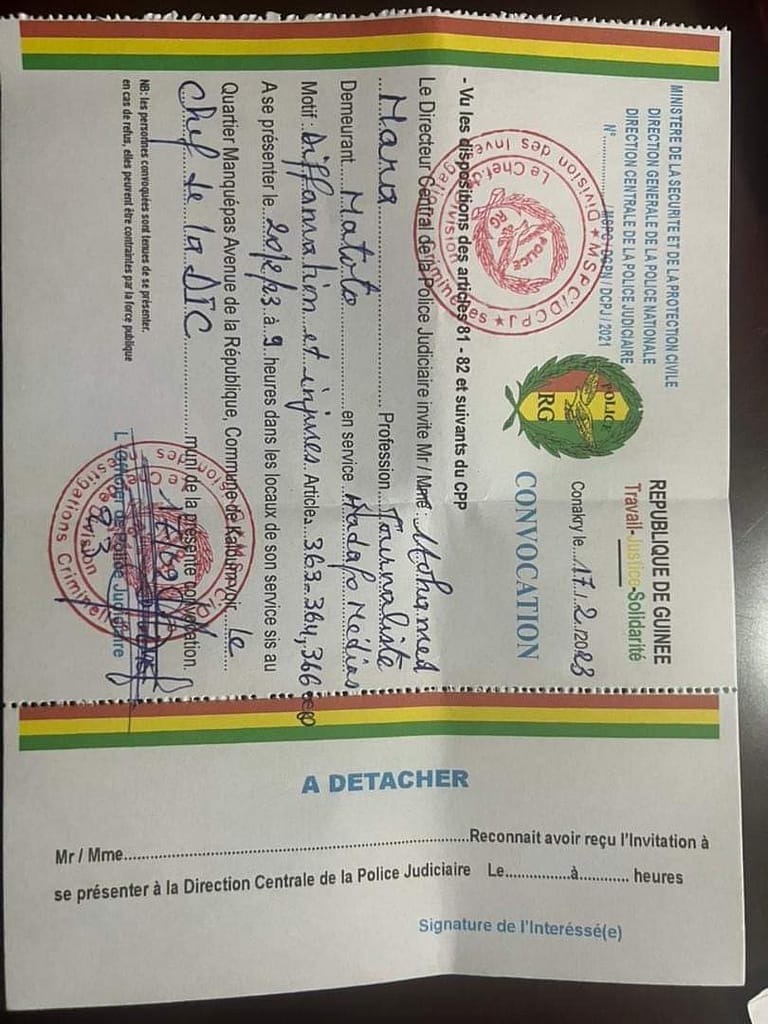 MINISTERE DE LA SECURITE ET DE LA PROTECTION CIVILE
DIRECTION GENERALE DE LA POLICE NATIONALE
DIRECTION CENTRALE DE LA POLICE JUDICIAIRE
N°................/MSPC/DGPN/DCPJ/2021
REPUBLIQUE DE GUINEE
Travail-Justice-Solidarité
Conakry le...17./.2./2023
POLICE
RG
CONVOCATION
- Vu les dispositions des articles 81 - 82 et suivants du CPP
Le Directeur Central de la Police Judiciaire invite Mr / Mme : Mohamed
...Mara........................ Profession...Journaliste
Demeurant....Matoto...............en service..Hadafo Médias
Motif :..Diffamation et injures. Articles...363-364, 366
A se présenter le...20/2/23 à 9 heures dans les locaux de son service sis au
Quartier Manquépas Avenue de la République, Commune de Kaloum voir..Le
Chef de la DIC................muni de la présente convocation.
NB: les personnes convoquées sont tenues de se présenter.
en cas de refus, elles peuvent être contraintes par la force publique
L'Officier de Police Judiciaire
Division des Investigations Criminelles
MSPC/DCPJ
Le Chef de Division
POLICE
RG
A DETACHER
Mr / Mme..................................................Reconnait avoir reçu l'Invitation à
se présenter à la Direction Centrale de la Police Judiciaire Le..............à........... heures
Signature de l'Interéssé(e)